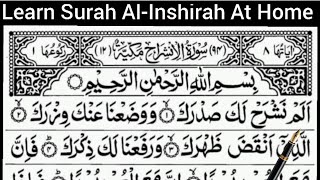 Learn Surah Al-Inshirah At Home
اٰیَاتُهَا ٨ (٩٤) سُوْرَةُ الْاِنْشِرَاحِ مَكِّیَّةٌ (١٢) رُكُوْعُهَا ١
بِسْمِ اللّٰهِ الرَّحْمٰنِ الرَّحِیْمِ
اَلَمْ نَشْرَحْ لَكَ صَدْرَكَ ۙ١ وَوَضَعْنَا عَنْكَ وِزْرَكَ ۙ٢
الَّذِیْۤ اَنْقَضَ ظَهْرَكَ ۙ٣ وَرَفَعْنَا لَكَ ذِكْرَكَ ؕ٤ فَاِنَّ